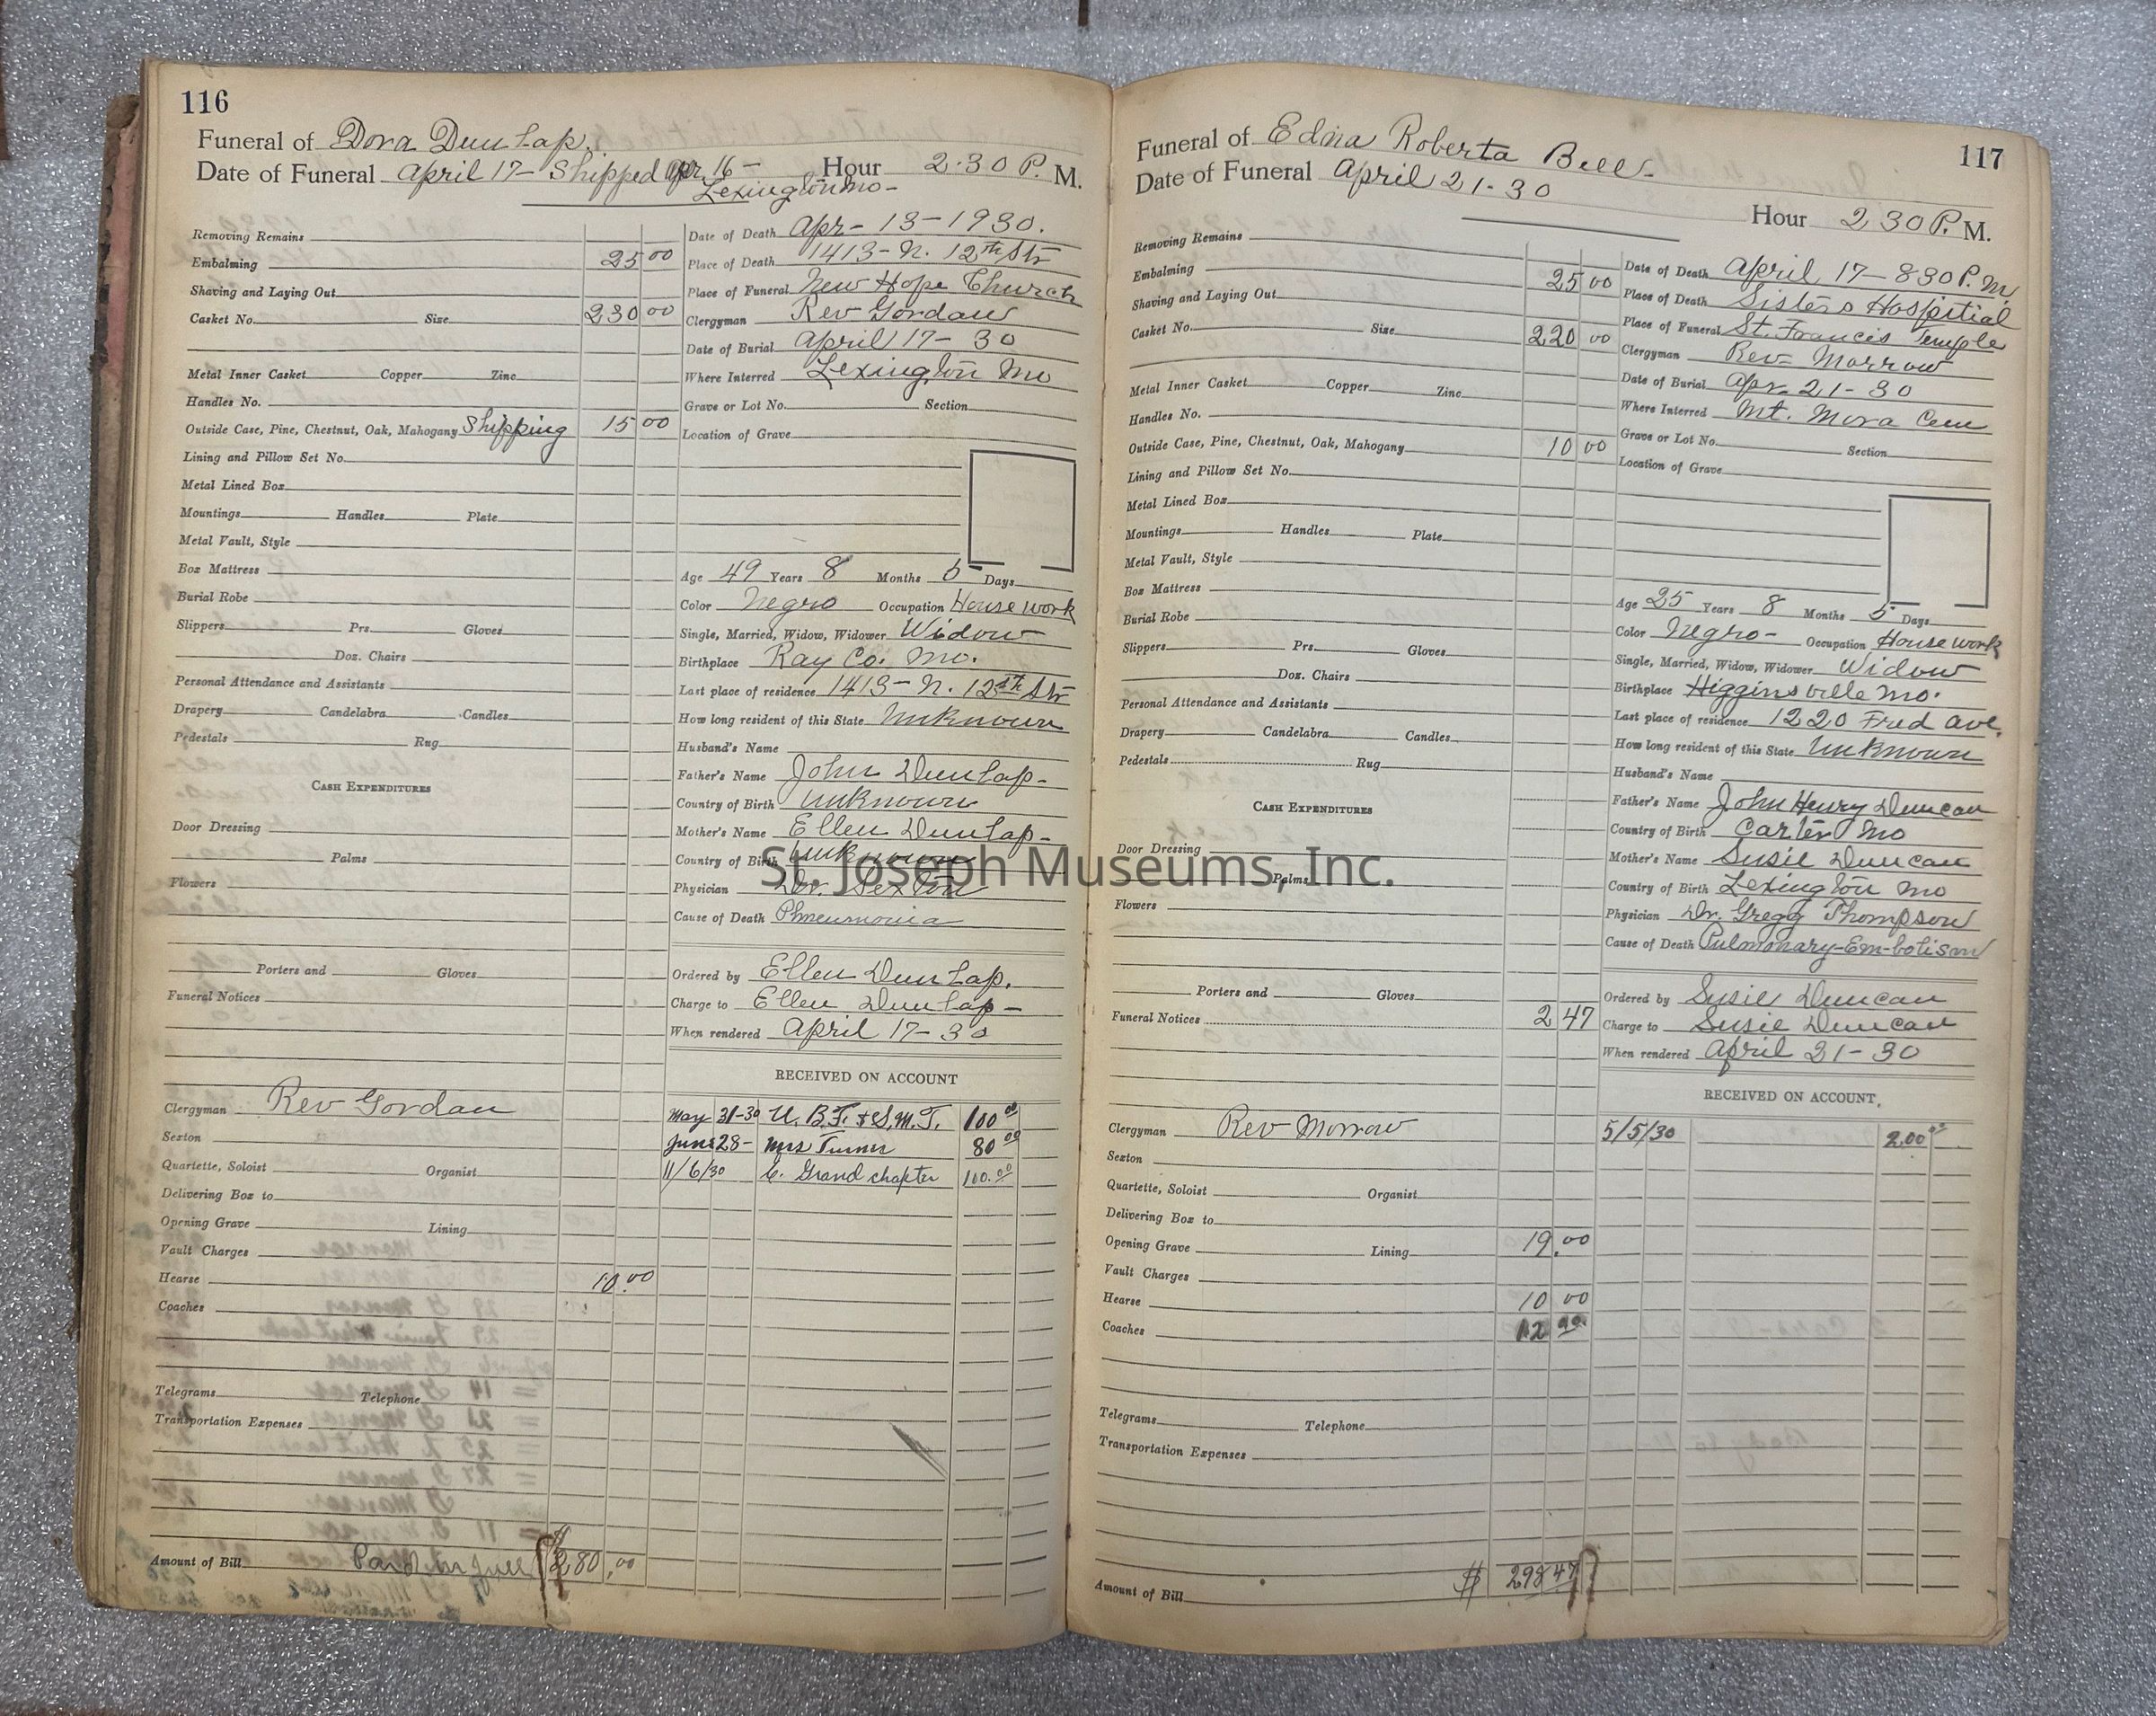 116
Funeral of Dora Dunlap.
Date of Funeral April 17- Shipped Apr. 16- Hour 2·30 P. M.
Lexington Mo-
Removing Remains
Embalming 25 00
Shaving and Laying Out
Casket No. Size 230 00
Metal Inner Casket Copper Zinc
Handles No.
Outside Case, Pine, Chestnut, Oak, Mahogany Shipping 15 00
Lining and Pillow Set No.
Metal Lined Box
Mountings Handles Plate
Metal Vault, Style
Box Mattress
Burial Robe
Slippers Prs. Gloves
Doz. Chairs
Personal Attendance and Assistants
Drapery Candelabra Candles
Pedestals Rug
CASH EXPENDITURES
Door Dressing
Palms
Flowers
Porters and Gloves
Funeral Notices
Clergyman Rev Gordan
Sexton
Quartette, Soloist Organist
Delivering Box to
Opening Grave Lining
Vault Charges
Hearse 10.00
Coaches
Telegrams Telephone
Transportation Expenses
Amount of Bill Paid in full $280.00
Date of Death Apr- 13-1930.
Place of Death 1413- N. 12th Str
Place of Funeral New Hope Church
Clergyman Rev Gordan
Date of Burial April 17- 30
Where Interred Lexington Mo
Grave or Lot No. Section
Location of Grave
Age 49 Years 8 Months 5 Days
Color Negro Occupation House work
Single, Married, Widow, Widower Widow
Birthplace Ray Co. Mo.
Last place of residence 1413- N. 12th Str
How long resident of this State Unknown
Husband's Name
Father's Name John Dunlap-
Country of Birth unknown
Mother's Name Ellen Dunlap-
Country of Birth Unknown
Physician Dr. Sexton
Cause of Death Phneumonia
Ordered by Ellen Dunlap.
Charge to Ellen Dunlap-
When rendered April 17- 30
RECEIVED ON ACCOUNT
May 31-30 U.B.F. & S.M.T. 100 00
June 28- Mrs Turner 80 00
11/6/30 C. Grand chapter 100.00
St. Joseph Museums, Inc.
117
Funeral of Edna Roberta Bell-
Date of Funeral April 21-30
Hour 2 30 P. M.
Removing Remains
Embalming 25 00
Shaving and Laying Out
Casket No. Size 220 00
Metal Inner Casket Copper Zinc
Handles No.
Outside Case, Pine, Chestnut, Oak, Mahogany 10 00
Lining and Pillow Set No.
Metal Lined Box
Mountings Handles Plate
Metal Vault, Style
Box Mattress
Burial Robe
Slippers Prs. Gloves
Doz. Chairs
Personal Attendance and Assistants
Drapery Candelabra Candles
Pedestals Rug
CASH EXPENDITURES
Door Dressing
Palms
Flowers
Porters and Gloves
Funeral Notices 2 47
Clergyman Rev Morrow
Sexton
Quartette, Soloist Organist
Delivering Box to
Opening Grave Lining 19.00
Vault Charges
Hearse 10 00
Coaches 12 00
Telegrams Telephone
Transportation Expenses
Amount of Bill $ 298 47
Date of Death April 17- 8 30 P. M.
Place of Death Sisters Hospitial
Place of Funeral St. Francis Temple
Clergyman Rev- Morrow
Date of Burial Apr- 21- 30
Where Interred Mt. Mora Cem
Grave or Lot No. Section
Location of Grave
Age 25 Years 8 Months 5 Days
Color Negro- Occupation House work
Single, Married, Widow, Widower Widow
Birthplace Higginsville Mo.
Last place of residence 1220 Fred Ave.
How long resident of this State Unknown
Husband's Name
Father's Name John Henry Duncan
Country of Birth Carter Mo
Mother's Name Susie Duncan
Country of Birth Lexington Mo
Physician Dr. Gregg Thompson
Cause of Death Pulmonary-Em-bolism
Ordered by Susie Duncan
Charge to Susie Duncan
When rendered April 21- 30
RECEIVED ON ACCOUNT.
5/5/30 200 00